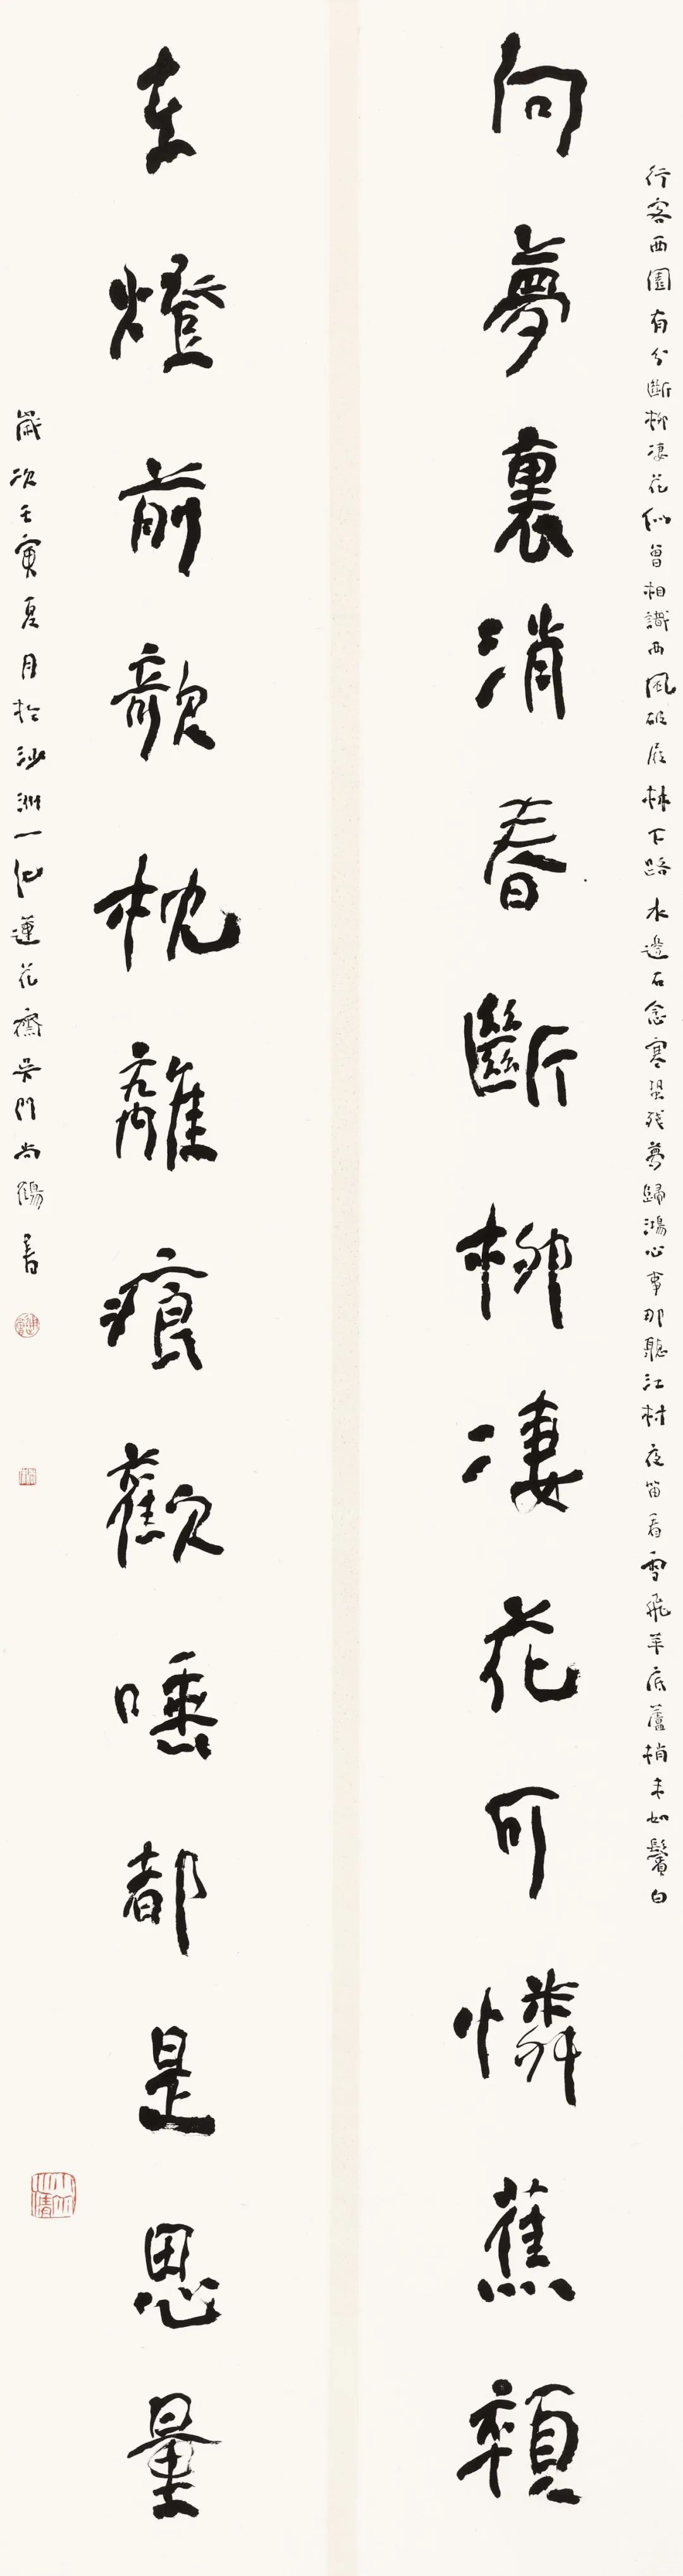 行客西園有分斷柳淒花似曾相識西風破屐林下路水邊石念寒蛩殘夢歸鴻心事那聽江村夜笛看雪飛苹底蘆梢未如鬢白
向夢裏消春斷柳淒花可憐蕉顇
在燈前欹枕離痕歡唾都是思量
歲次壬寅夏月於沙洲一池蓮花齋吳門尚鶴書